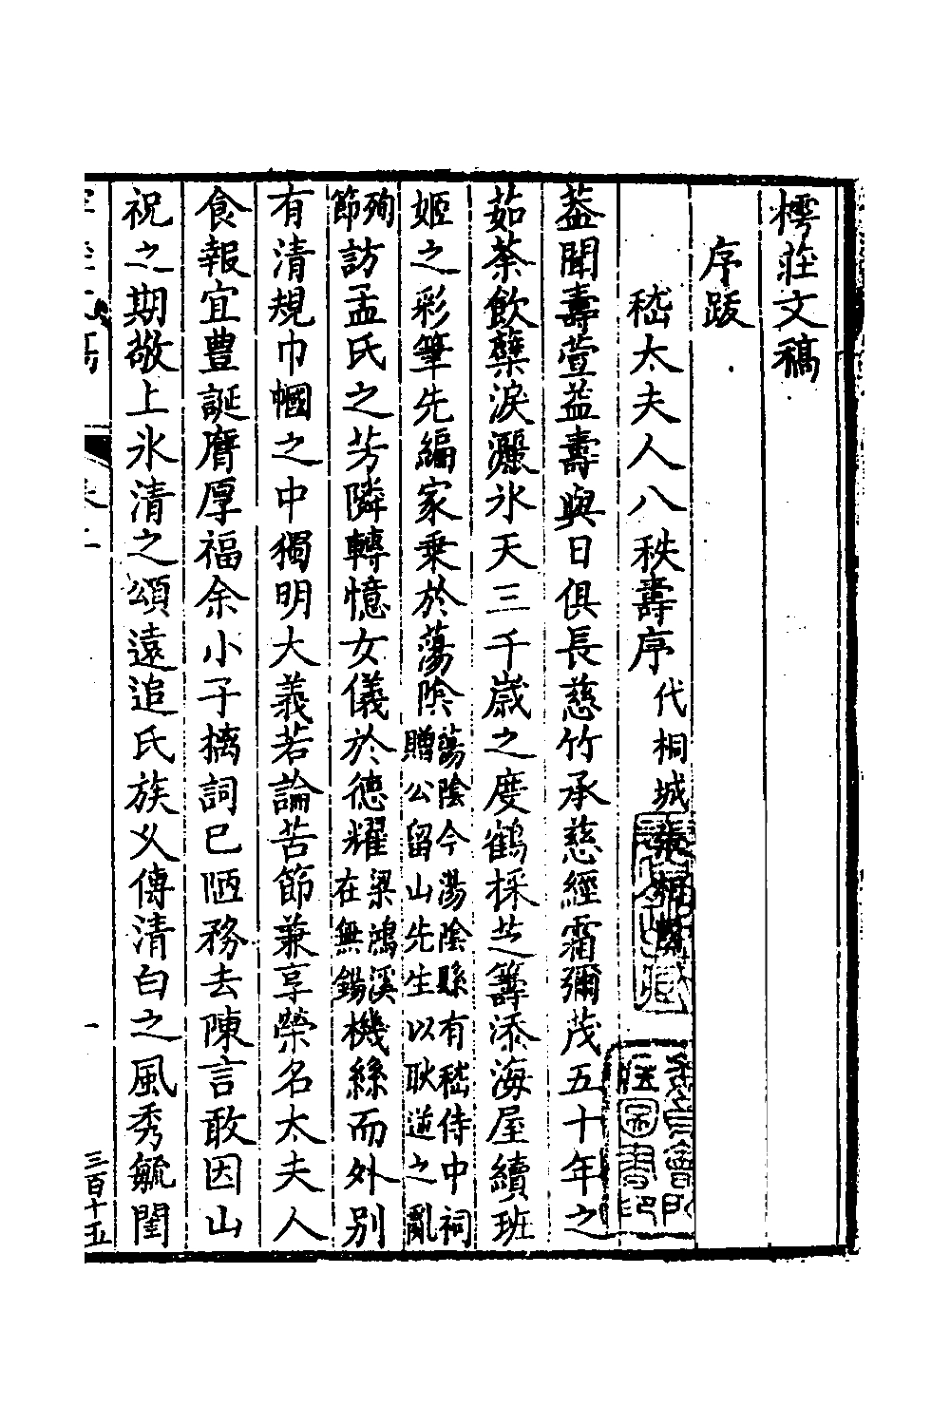 樗莊文稿
序跋
嵇太夫人八秩壽序代桐城張
葢聞壽萱益壽與日俱長慈竹承慈經霜彌茂五十年之
茹荼飲蘗淚灑氷天三千歲之度鶴採芝籌添海屋續班
姬之彩筆先編家乗於蕩陰蕩陰今湯陰縣有嵇侍中祠贈公留山先生以耿逆之亂
殉節訪孟氏之芳隣轉憶女儀於德耀梁鴻溪在無錫機絲而外别
有清規巾幗之中獨明大義若論苦節兼享榮名太夫人
食報宜豊誕膺厚福余小子摛詞已陋務去陳言敢因山
祝之期敬上氷清之頌遠追氏族乂傳清白之風秀毓閨
三百十五